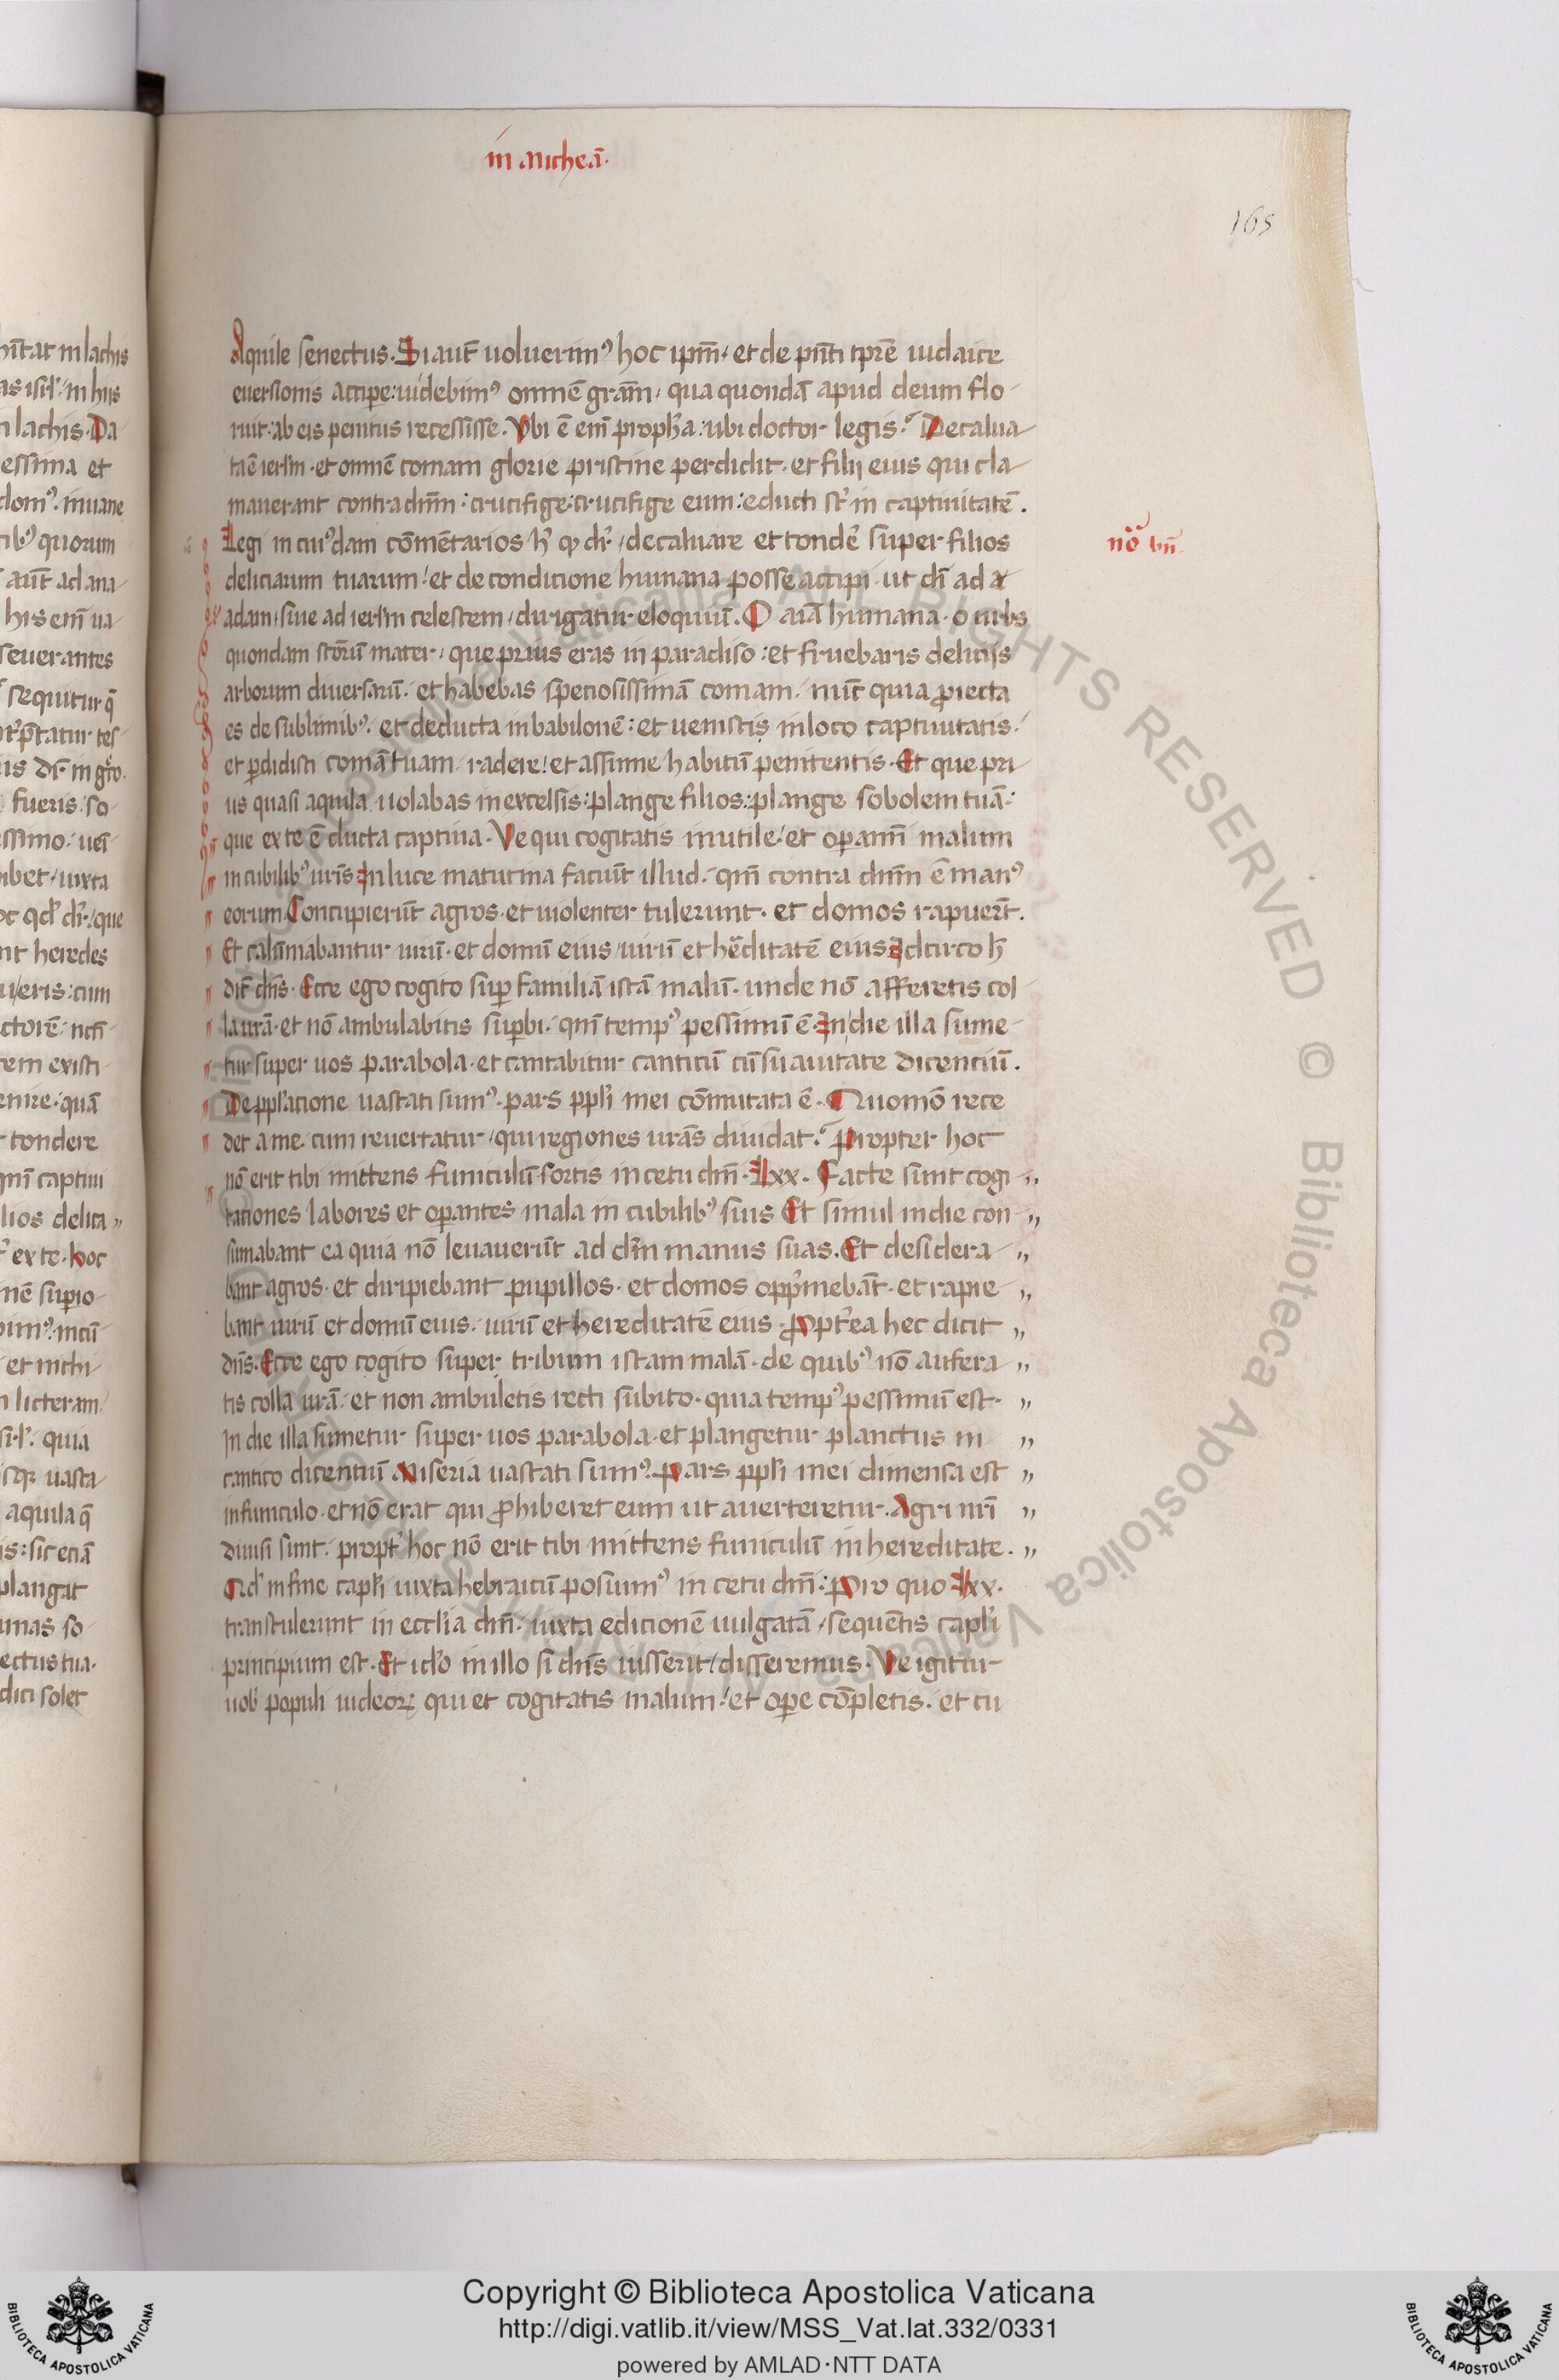 in Micheā.
165
Aquile senectus. Si aut̄ uoluerimꝰ hoc ipm̄, et de pn̄ti tp̄re iudaice
euersionis accipe: uidebimꝰ omnē grām, qua quondā apud deum flo-
ruit: ab eis penitus recessisse. Vbi ē eni᷒ propħa: ubi doctor legis? Decalua
ta ē ierl̄m. et omnē comam glorie pristine perdidit. et filij eius qui cla-
mauerant contra dn̄m: crucifige: crucifige eum: educti st̄ in captiuitatē.
Legi in cuiꝰdam cōmētarios ħ ꝙ dr̄, decaluare et tondē super filios
nō bn̄
deliciarum tuarum: et de condicione humana posse accipi. ut di᷒ ad
adam, siue ad ierl̄m celestem, dirigatur eloquiū. O aīa humana. o urbs
quondam sctōrū mater, que prius eras in paradiso: et fruebaris delicijs
arborum diuersarū. et habebas speciosissimā comam. nūc quia ꝓiecta
es de sublimibꝰ. et deducta in babilonē: et uenistis in loco captiuitatis.
et ꝑdidisti comā tuam. radere: et assume habitū penitentis. Et que pri
us quasi aquila uolabas in excelsis: plange filios: plange sobolem tuā:
que ex te ē ducta captiua. Ve qui cogitatis inutile: et opamī malum
in cubilibꝰ uris̄ In luce matutina faciūt illud. qm̄ contra dn̄m ē manꝰ
eorum. Concupierūt agros. et uiolenter tulerunt. et domos rapuer̄t.
Et calūmabantur uirū. et domū eius, uirū et hēditatē eius. Idcirco ħ
dic̄ dn̄s. Ecce ego cogito suꝑ familiā istā malū. unde nō afferetis col
la ūrā. et nō ambulabitis suꝑbi. qm̄ tempꝰ pessimū ē. In die illa sume-
tur super uos parabola. et cantabitur canticū cū suauitate dicenciū.
Depplatione uastati sumꝰ. pars ppl̄i mei cōmutata ē. Quomō rece
det a me. cum reuertatur, qui regiones ur̄as diuidat? Propter hoc
nō erit tibi mittens funiculū sortis in cetu dn̄i. Lxx. Facte sunt cogi-
tationes labores et opantes mala in cubilibꝰ suis Et simul in die con-
sumabant ea quia nō leuauerūt ad dm̄ manus suas. Et desidera-
bant agros. et diripiebant pupillos. et domos opp̄mebāt. et rapie-
bant uirū et domū eius. uirū et hereditatē eius. Propt̄ea hec dicit
dn̄s. Ecce ego cogito super tribum istam malā. de quibꝰ nō aufera-
tis colla ur̄a. et non ambuletis recti subito. quia tempꝰ pessimū est.
In die illa sumetur super uos parabola. et plangetur planctus in
cantico dicentiū Miseria uastati sumꝰ. Pars ppl̄i mei dimensa est
in funiculo. et nō erat qui ꝓhiberet eum ut auerteretur. Agri nr̄i
diuisi sunt. propt̄ hoc nō erit tibi mittens funiculū in hereditate.
Qd̄ in fine capl̄i iuxta hebraicū posuimꝰ in cetu dn̄i: Pro quo Lxx.
transtulerunt in eccl̄ia dn̄i. iuxta edicionē uulgatā, sequētis capl̄i
principium est. Et id̄o in illo si dn̄s iusserit, disseremus. Ve igitur
uob̄ populi iudeoꝝ qui et cogitatis malum: et ope cōpletis. et cu
Copyright © Biblioteca Apostolica Vaticana
http://digi.vatlib.it/view/MSS_Vat.lat.332/0331
powered by AMLAD·NTT DATA